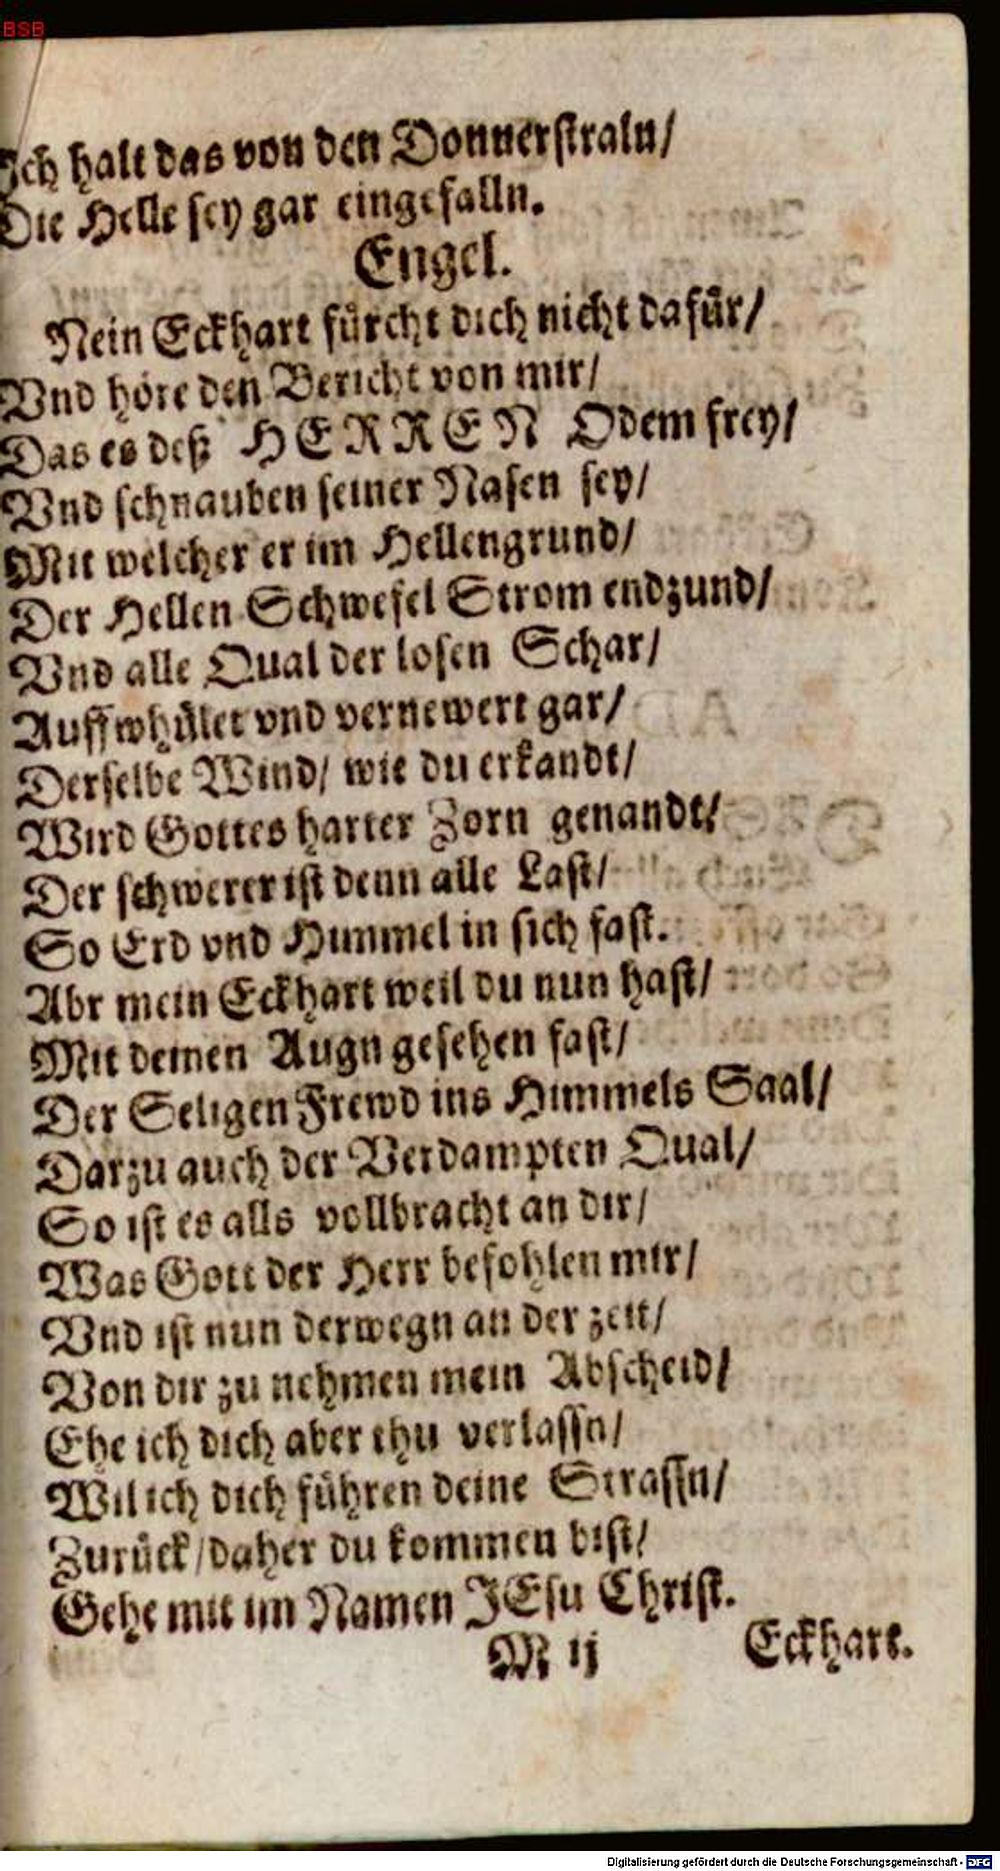 BSB
Ich halt das von den Donnerstraln/
Die Helle sey gar eingefalln.
Engel.
Nein Eckhart fürcht dich nicht dafür/
Vnd höre den Bericht von mir/
Das es deß HERREN Odem frey/
Vnd schnauben seiner Nasen sey/
Mit welcher er im Hellengrund/
Der Hellen Schwefel Strom endzund/
Vnd alle Qual der losen Schar/
Auffwhület vnd vernewert gar/
Derselbe Wind/ wie du erkandt/
Wird Gottes harter Zorn genandt/
Der schwerer ist denn alle Last/
So Erd vnd Himmel in sich fast.
Abr mein Eckhart weil du nun hast/
Mit deinen Augn gesehen fast/
Der Seligen Frewd ins Himmels Saal/
Darzu auch der Verdampten Qual/
So ist es alls vollbracht an dir/
Was Gott der Herr befohlen mir/
Vnd ist nun derwegn an der zeit/
Von dir zu nehmen mein Abscheid/
Ehe ich dich aber thu verlassn/
Wil ich dich führen deine Strassn/
Zurück/daher du kommen bist/
Gehe mit im Namen JEsu Christ.
M ij Eckhart.
Digitalisierung gefördert durch die Deutsche Forschungsgemeinschaft - DFG